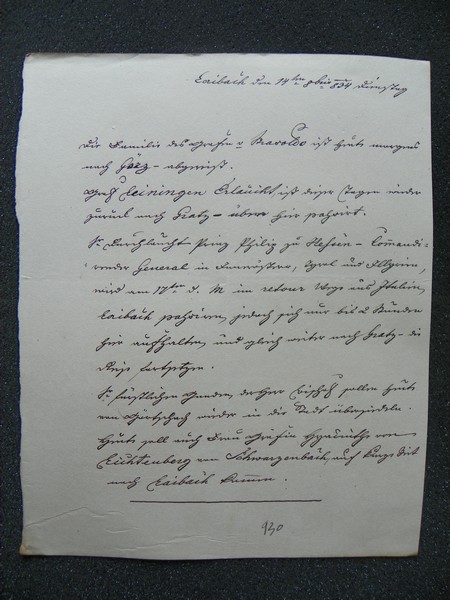 Laibach den 14ten 8ber 834 Dienstag
Die Familie des Grafen v Navoldo ist heute morgens
nach Görz - abgereist.
Graf Leiningen Erlaucht, ist dieser Tagen wieder
zurück nach Gratz - über hier passirt.
Sr Durchlaucht Prinz Philip zu Hessen - Commandi-
render General in Innerösterr, Tyrol und Illyrien,
wird am 17ten d. M. im retour Wege aus Italien,
Laibach passiren, jedoch sich nur 2 Stunden
hier aufhalten, und gleich weiter nach Gratz - die
Reise fortsetzen.
Sr fürstlichen Gnaden der Herr Bischof sollen heute
von Görtschach wieder in die Stadt übersiedeln.
Heute soll auch Frau Gräfin von
Lichtenberg von Schwarzenbach, auf kurze Zeit
nach Laibach kommen.
930